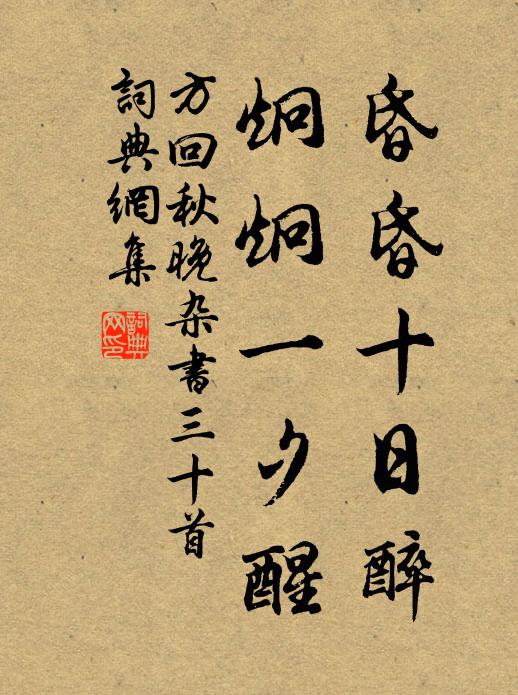 昏昏十日醉
炯炯一夕醒
方回秋晚杂書三十首
詞典網集
詞典网印